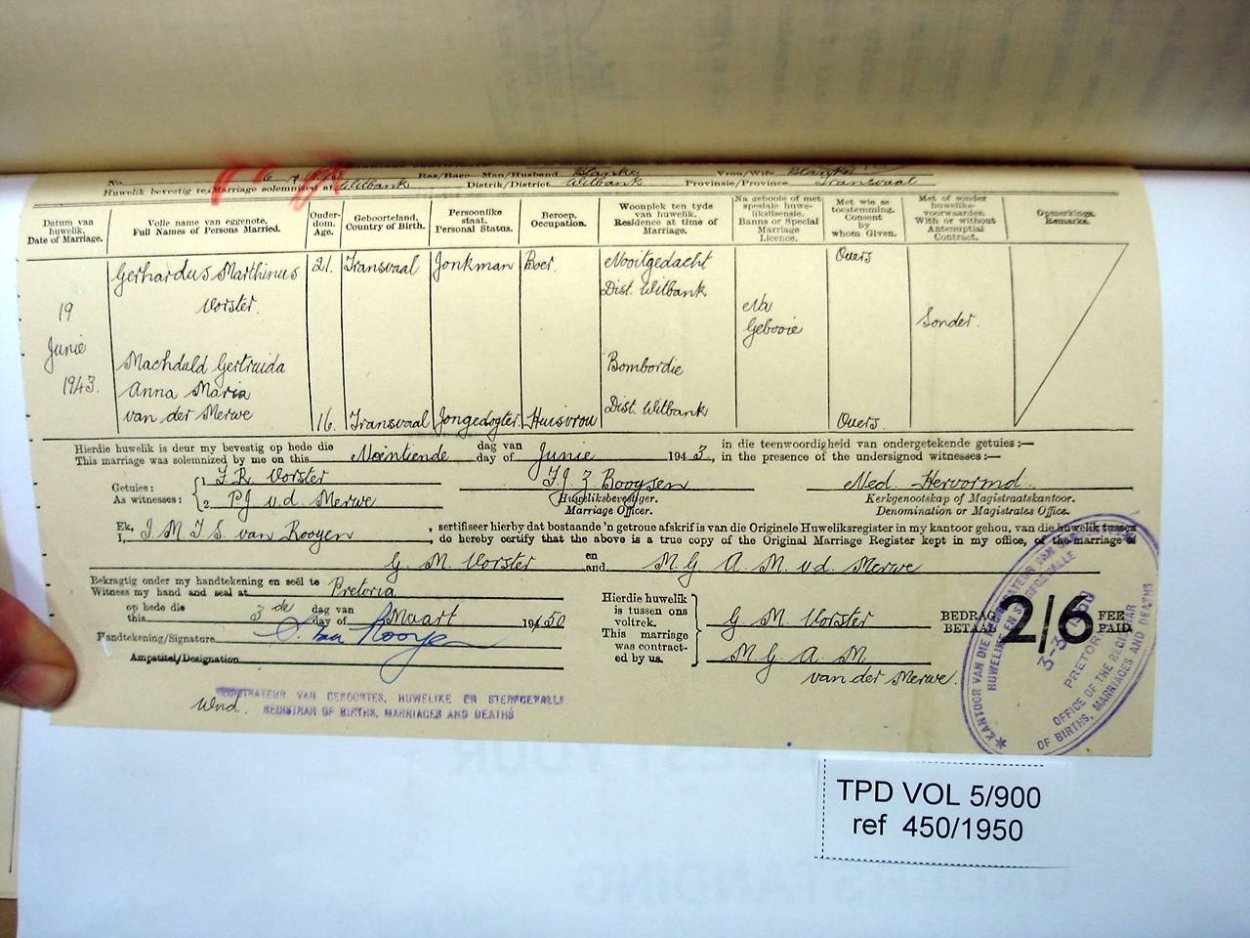 No. Ras/Race. Man/Husband Blanke Vrou/Wife Blanke
Huwelik bevestig te/Marriage solemnized at Witbank Distrik/District Witbank Provinsie/Province Transvaal
Datum van huwelik. Date of Marriage.
Volle name van eggenote. Full Names of Persons Married.
Ouderdom. Age.
Geboorteland. Country of Birth.
Persoonlike staat. Personal Status.
Beroep. Occupation.
Woonplek ten tyde van huwelik. Residence at time of Marriage.
Na geboote of met spesiale huwelikslisensie. Banns or Special Marriage Licence.
Met wie se toestemming. Consent by whom Given.
Met of sonder huweliks-voorwaardes. With or without Antenuptial Contract.
Opmerkings. Remarks.
Gerhardus Marthinus 21. Transvaal Jonkman Boer. Nooitgedacht Ouers
Vorster. Dist. Witbank
19 Na Sonder.
Junie Gebooie
1943.
Machdald Gertruida Bombordie
Anna Maria
van der Merwe 16. Transvaal Jongedogter Huisvrou Dist. Witbank Ouers.
Hierdie huwelik is deur my bevestig op hede die dag van in die teenwoordigheid van ondergetekende getuies:—
This marriage was solemnized by me on this Neëntiende day of Junie 1943, in the presence of the undersigned witnesses:—
Getuies: 1 Vorster Booysen Ned. Hervormd.
As witnesses: 2 P.J. v.d. Merwe Huweliksbevestiger. Kerkgenootskap of Magistraatskantoor.
Marriage Officer. Denomination or Magistrates Office.
Ek, , sertifiseer hierby dat bostaande 'n getroue afskrif is van die Originele Huweliksregister in my kantoor gehou, van die huwelik tussen
I, J. M. J. S. van Rooyen , do hereby certify that the above is a true copy of the Original Marriage Register kept in my office, of the marriage of
G. M. Vorster en and M. G. A. M. v.d. Merwe
Bekragtig onder my handtekening en seël te
Witness my hand and seal at Pretoria
op hede die dag van
this 3 de day of Maart 1950
Handtekening/Signature van Rooyen
Ampstitel/Designation
Wnd. REGISTRATEUR VAN GEBOORTES, HUWELIKE EN STERFGEVALLE
REGISTRAR OF BIRTHS, MARRIAGES AND DEATHS
Hierdie huwelik is tussen ons voltrek.
This marriage was contracted by us.
G M Vorster
M. G. A. M
van der Merwe.
BEDRAG BETAAL 2/6 FEE PAID.
KANTOOR VAN DIE REGISTRATEUR VAN
HUWELIKE EN STERFGEVALLE
PRETORIA
OFFICE OF THE REGISTRAR
OF BIRTHS, MARRIAGES AND DEATHS
TPD VOL 5/900
ref 450/1950